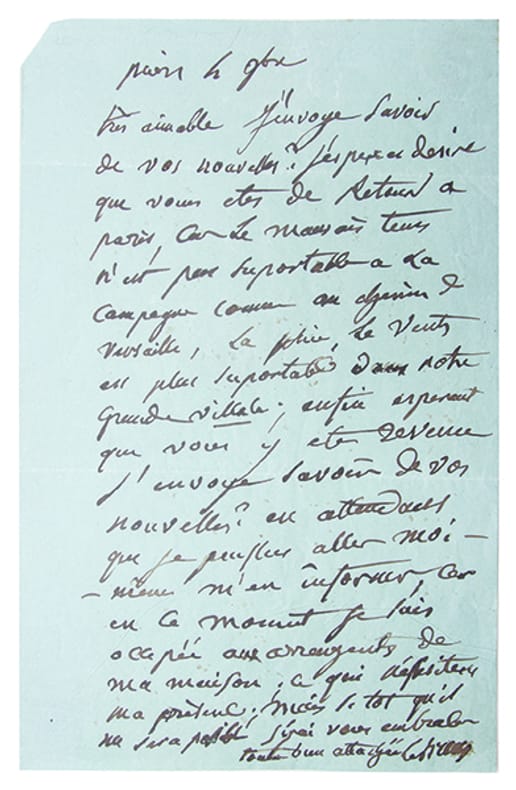 9bre
très aimable J'envoye Savoir
de vos nouvelles? J'espere et desire
que vous etes de Retour a
paris, Car Le mauvais tems
n'est pas Suportable a La
Campagne comme au chemin de
Versaille, La pluie, Le Vents
est plus Suportable Dans notre
Grande ville; enfin esperent
que vous y ete Revenue
J'envoye Savoir de vos
nouvelles? en attendant
que je puisse aller moi-
-même m'en informer, Car
en Ce moment Je Suis
ocupée aux arrengents de
ma maison; Ce qui
ma présence; Mais Si tot qu'il
me Sera posible J'irai vous embrasser
toute attachée